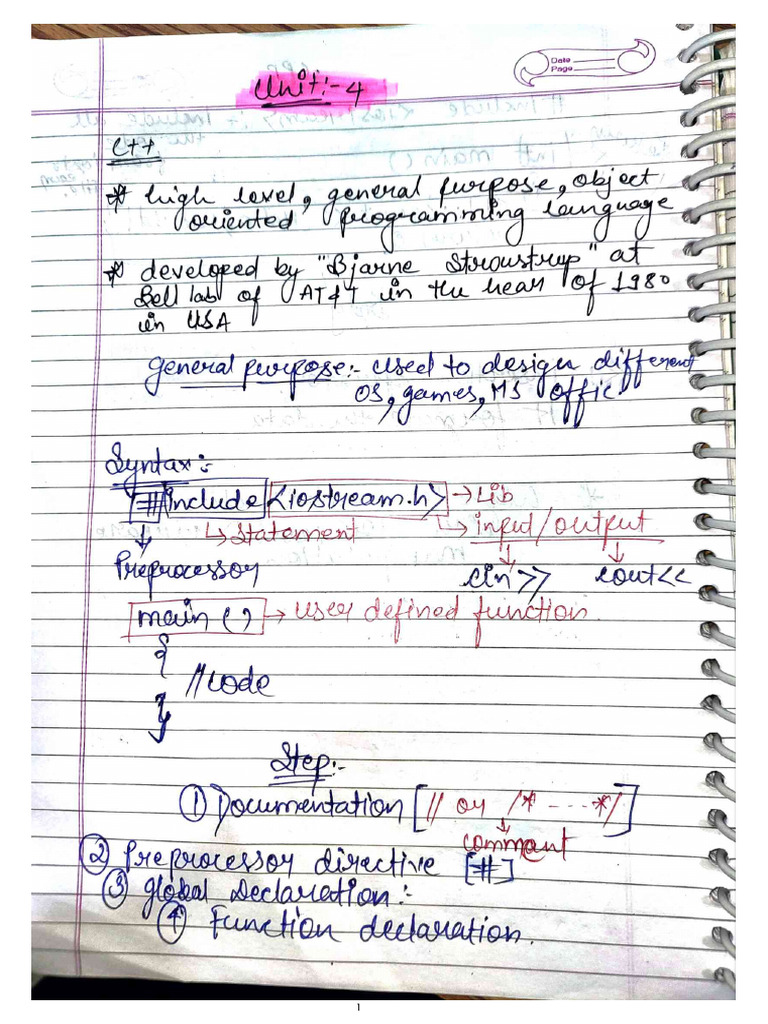 Date
Page
Unit:-4
C++
* high level, general purpose, object
oriented programming language
* developed by "Bjarne Stroustrup" at
Bell lab of AT&T in the year of 1980
in USA
general purpose:- used to design different
OS, games, MS offic
Syntax:-
#include <iostream.h> → Lib
↳ Statement ↳ input/output
Preprocessor cin>> cout<<
main () → user defined function
{
//code
}
Step:-
① Documentation [// or /* ----*/]
comment
② Preprocessor directive [#]
③ Global Declaration:-
④ Function declaration.
1